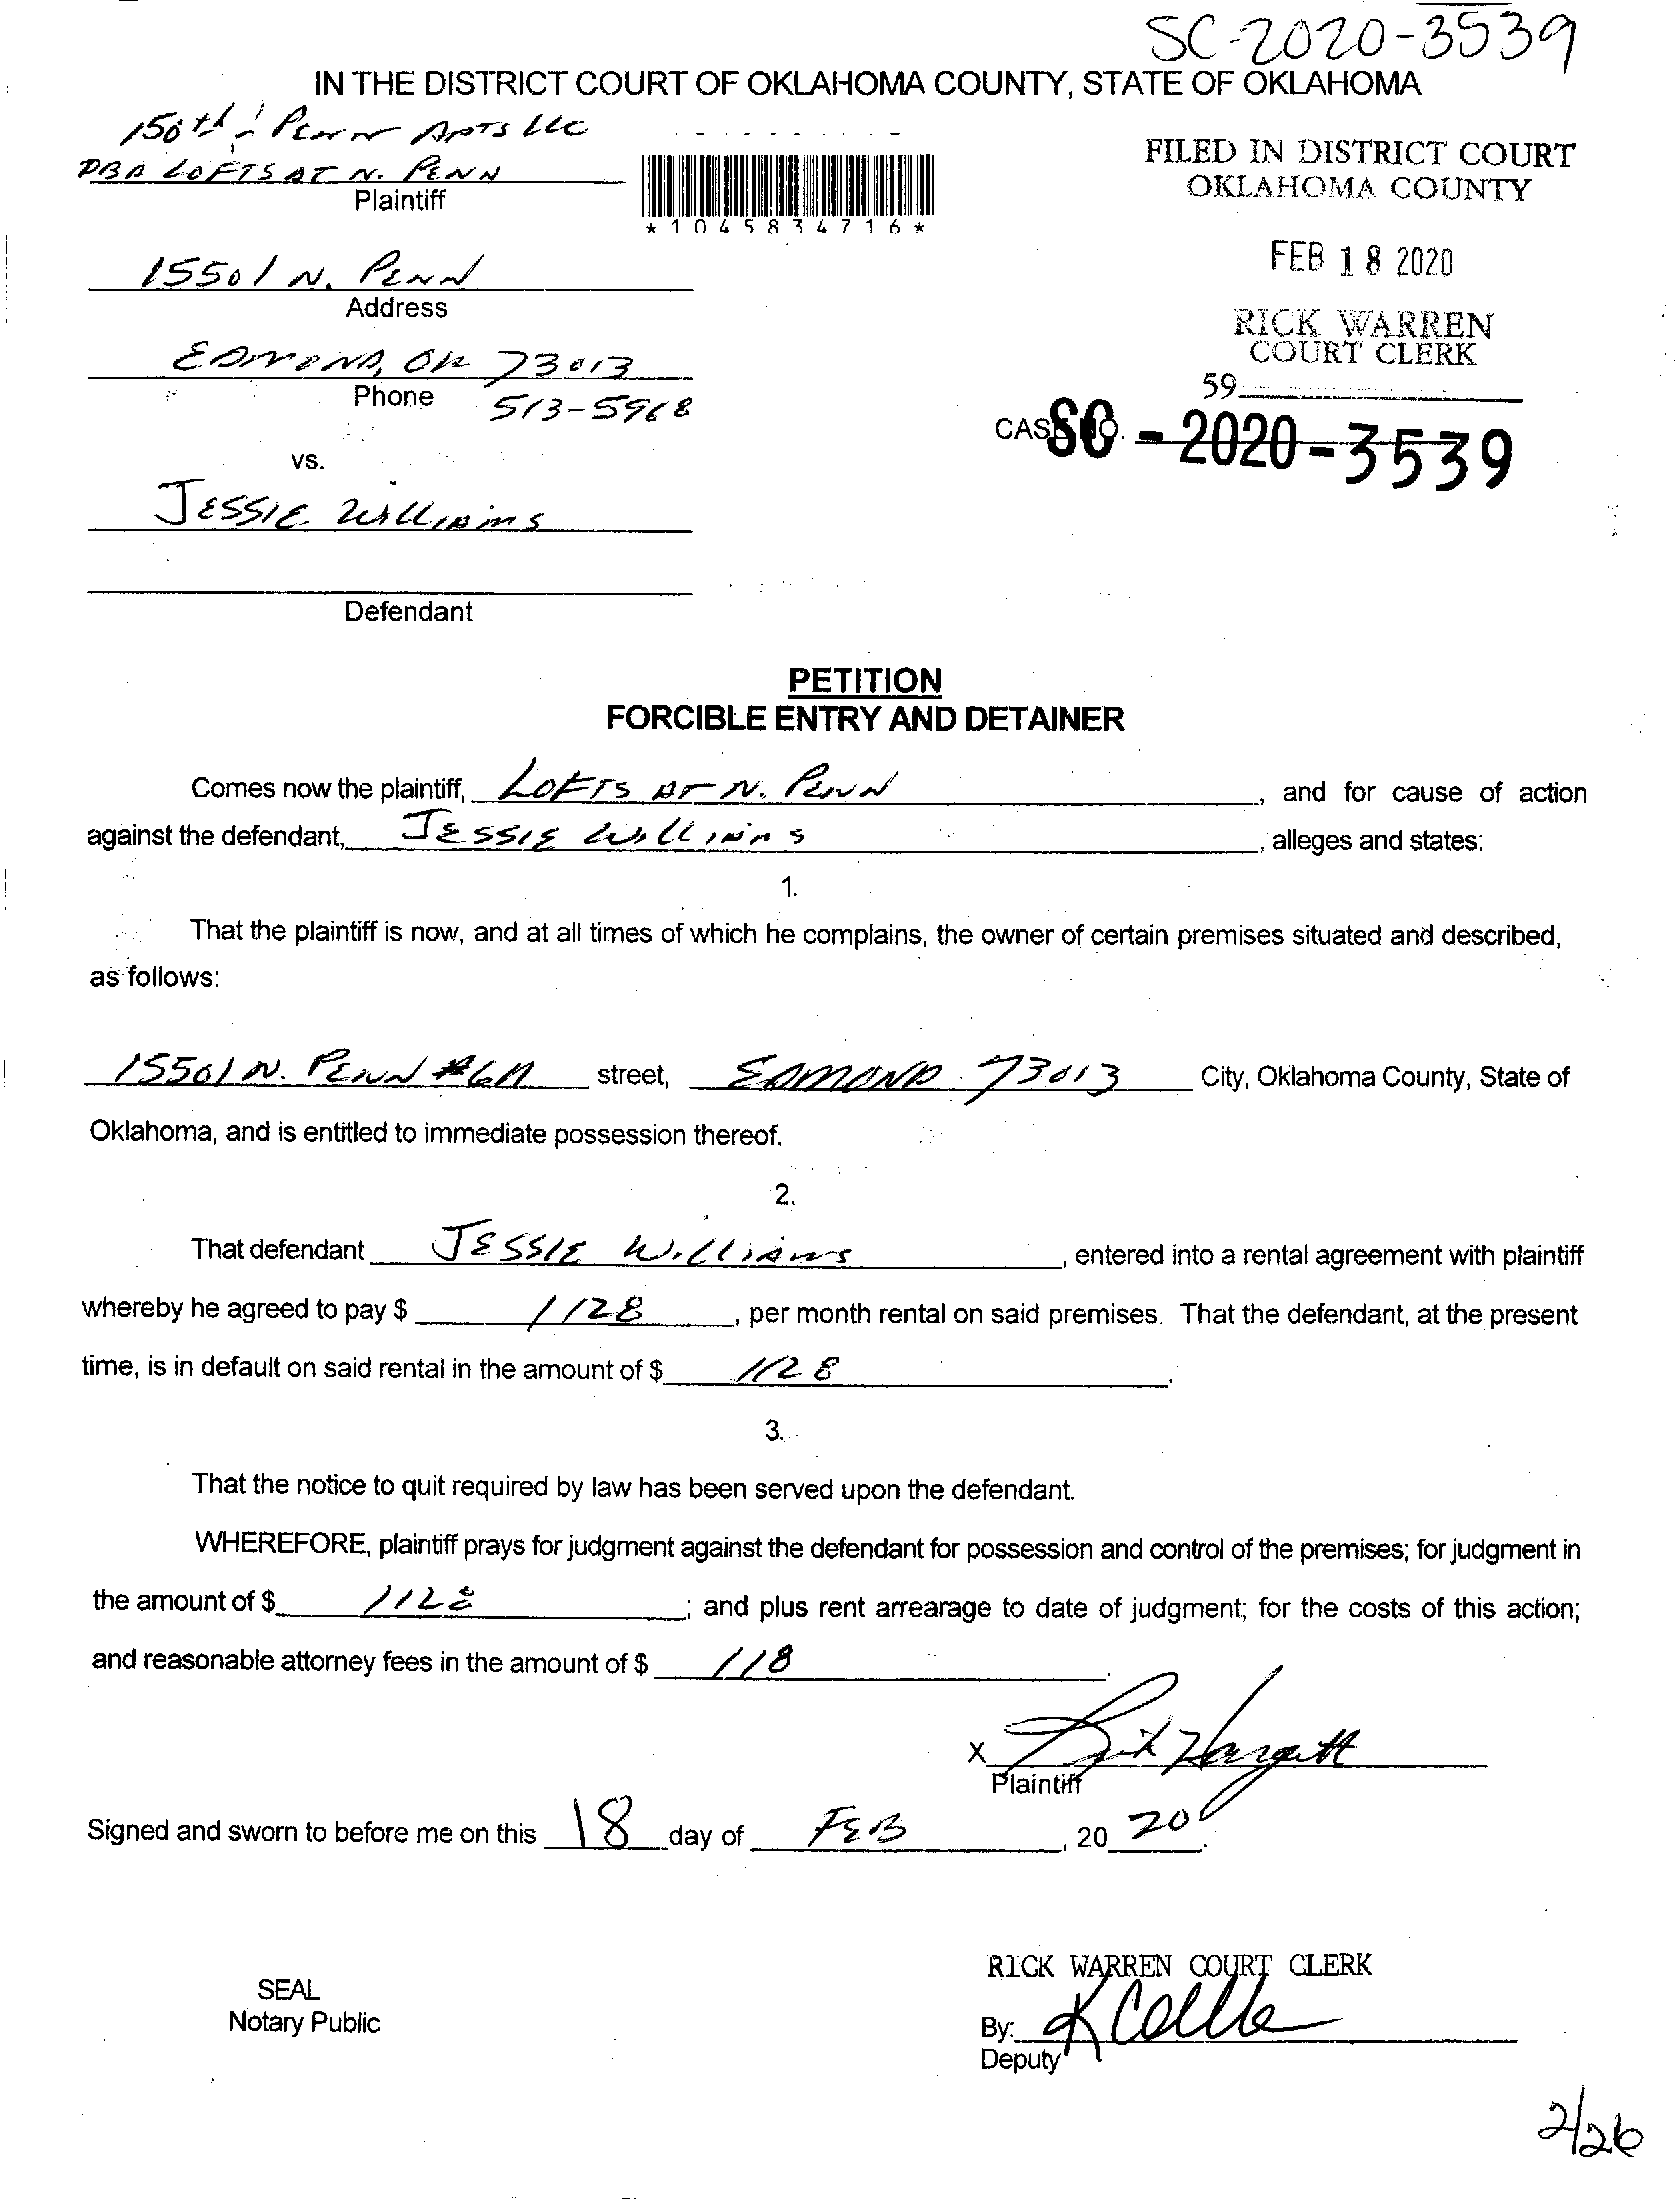 SC-2020-3539
IN THE DISTRICT COURT OF OKLAHOMA COUNTY, STATE OF OKLAHOMA
150th & PENN APTS LLC
DBA LOFTS AT N. PENN
Plaintiff
*1045834716*
FILED IN DISTRICT COURT
OKLAHOMA COUNTY
FEB 18 2020
RICK WARREN
COURT CLERK
59
15501 N. PENN
Address
EDMOND, OK 73013
Phone 513-5968
CASE NO. SC-2020-3539
vs.
JESSIE WILLIAMS
Defendant
PETITION
FORCIBLE ENTRY AND DETAINER
Comes now the plaintiff, LOFTS AT N. PENN, and for cause of action
against the defendant, JESSIE WILLIAMS, alleges and states:
1.
That the plaintiff is now, and at all times of which he complains, the owner of certain premises situated and described,
as follows:
15501 N. PENN #6A street, EDMOND 73013 City, Oklahoma County, State of
Oklahoma, and is entitled to immediate possession thereof.
2.
That defendant JESSIE WILLIAMS, entered into a rental agreement with plaintiff
whereby he agreed to pay $ 1128, per month rental on said premises. That the defendant, at the present
time, is in default on said rental in the amount of $ 1128.
3.
That the notice to quit required by law has been served upon the defendant.
WHEREFORE, plaintiff prays for judgment against the defendant for possession and control of the premises; for judgment in
the amount of $ 1128; and plus rent arrearage to date of judgment; for the costs of this action;
and reasonable attorney fees in the amount of $ 118.
X
Plaintiff
Signed and sworn to before me on this 18 day of FEB, 2020.
SEAL
Notary Public
RICK WARREN COURT CLERK
By:
Deputy
2/26